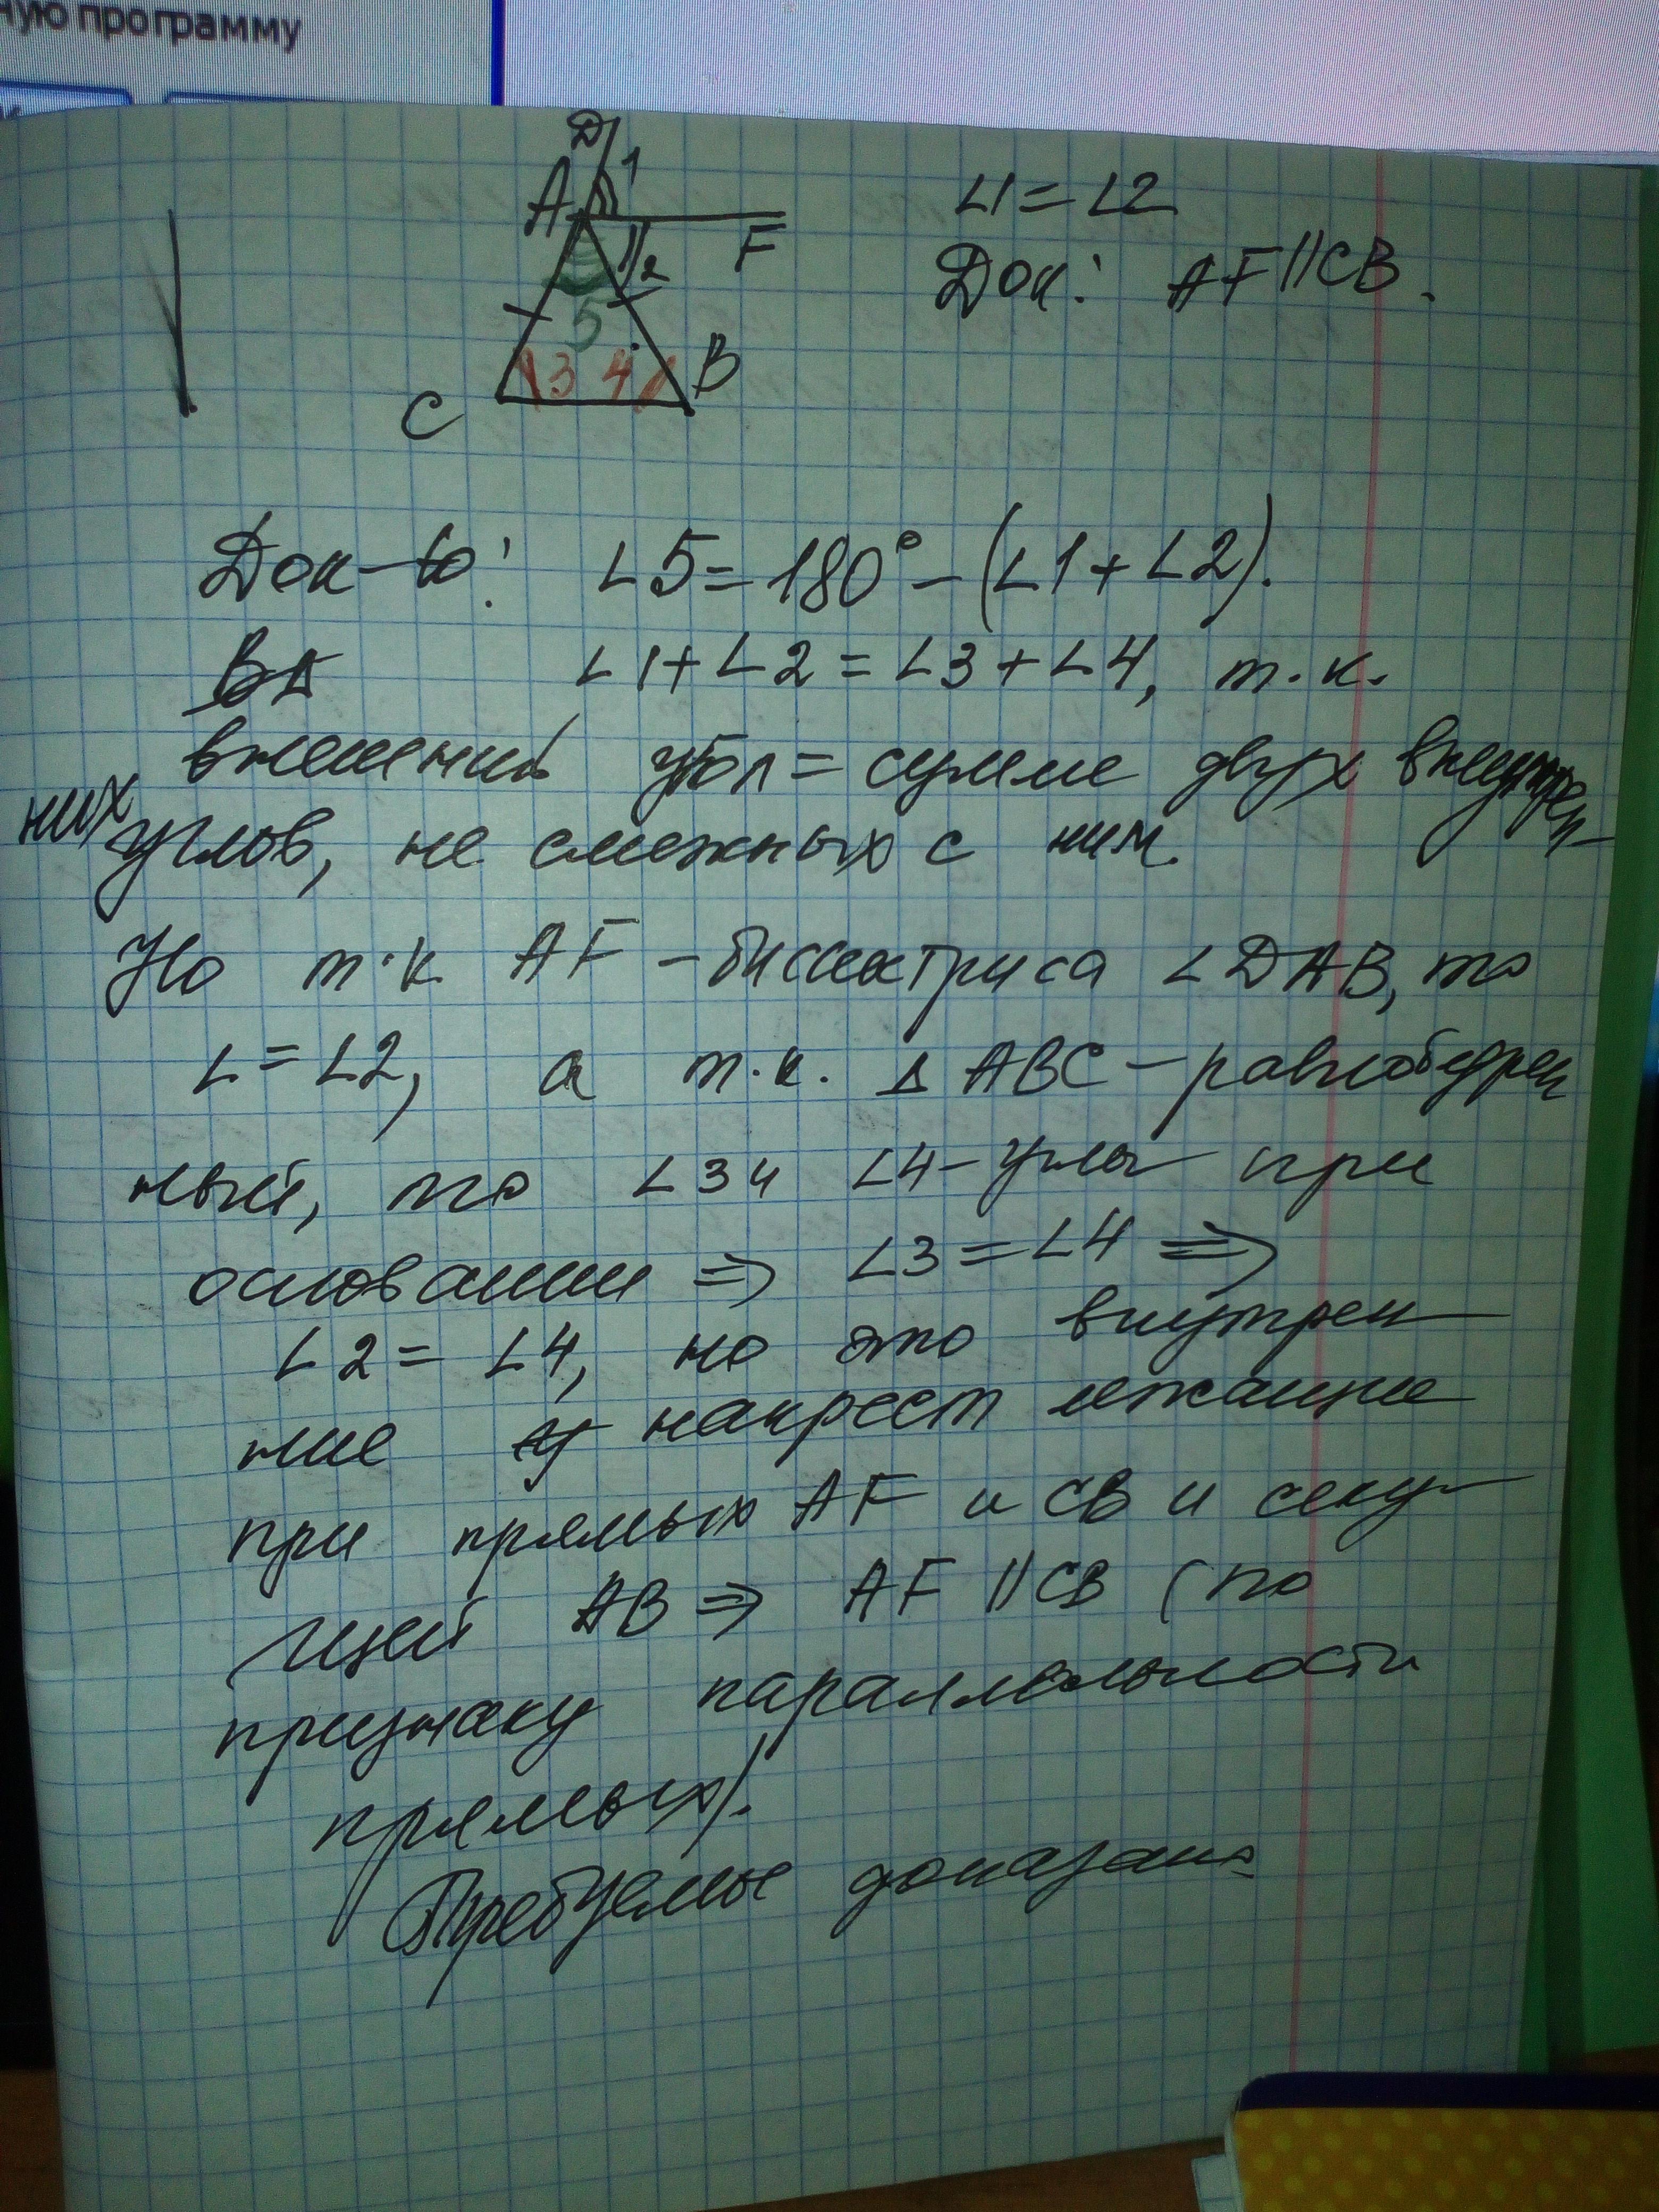 ную программу
к
D
1
A
F
2
5
3 4
B
C
∠1=∠2
Док: AF||CB.
Док-во: ∠5=180°-(∠1+∠2).
В∆ ∠1+∠2=∠3+∠4, т.к.
внешний угол = сумме двух внутрен-
них углов, не смежных с ним.
Но т.к AF-биссектриса ∠DAB, то
∠=∠2, а т.к. ∆ABC-равнобедрен
ный, то ∠3 и ∠4-углы при
основании ⇒ ∠3=∠4 ⇒
∠2=∠4, но это внутрен
ние у накрест лежащие
при прямых AF и CB и секу-
щей AB ⇒ AF||CB (по
признаку параллельности
прямых).
Требуемое доказано